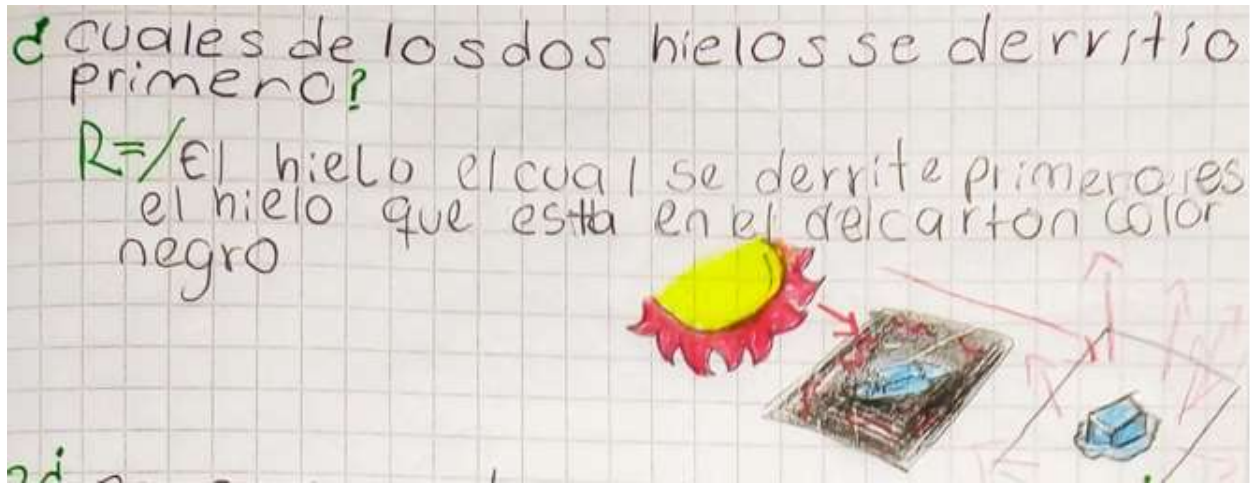 ¿cuales de los dos hielos se derritio
primero?
R=/El hielo el cual se derrite primero es
el hielo que estta en el del carton color
negro